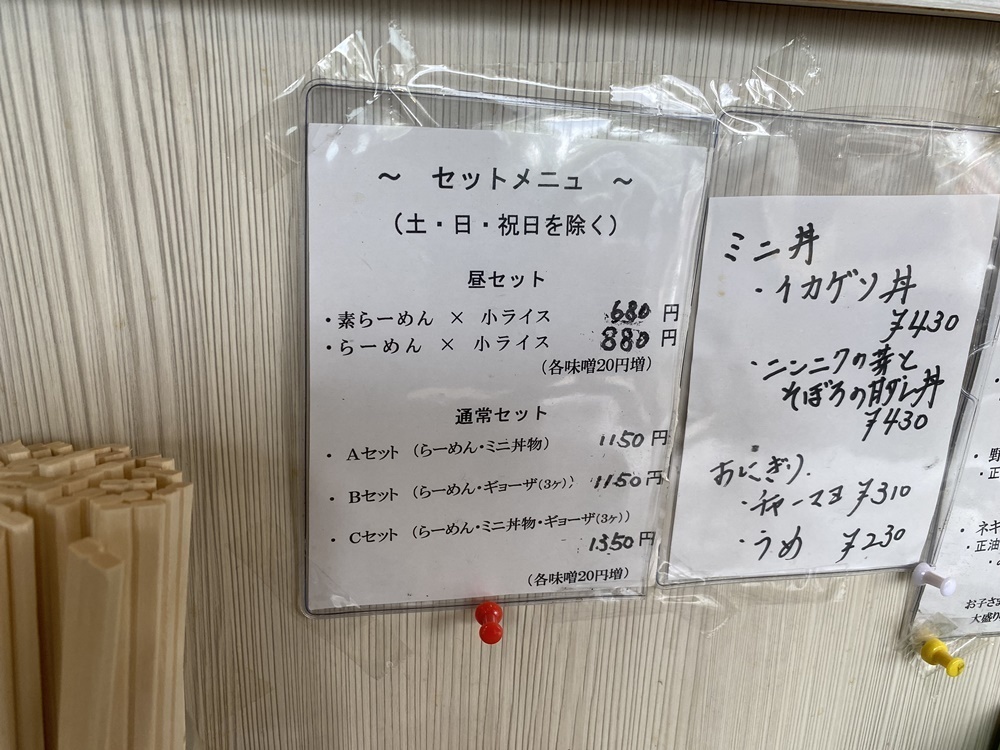 ～ セットメニュ ～
（土・日・祝日を除く）
昼セット
・素らーめん × 小ライス 680 円
・らーめん × 小ライス 880 円
（各味噌20円増）
通常セット
・ Aセット （らーめん・ミニ丼物） 1150 円
・ Bセット （らーめん・ギョーザ(3ヶ)） 1150 円
・ Cセット （らーめん・ミニ丼物・ギョーザ(3ヶ)）
1350 円
（各味噌20円増）
ミニ丼
・イカゲソ丼
¥430
・ニンニクの芽と
そぼろの甘ダレ丼
¥430
おにぎり
・チャーマヨ ¥310
・うめ ¥230
・野
・正
・ネギ
・正油
お子さま
大盛り